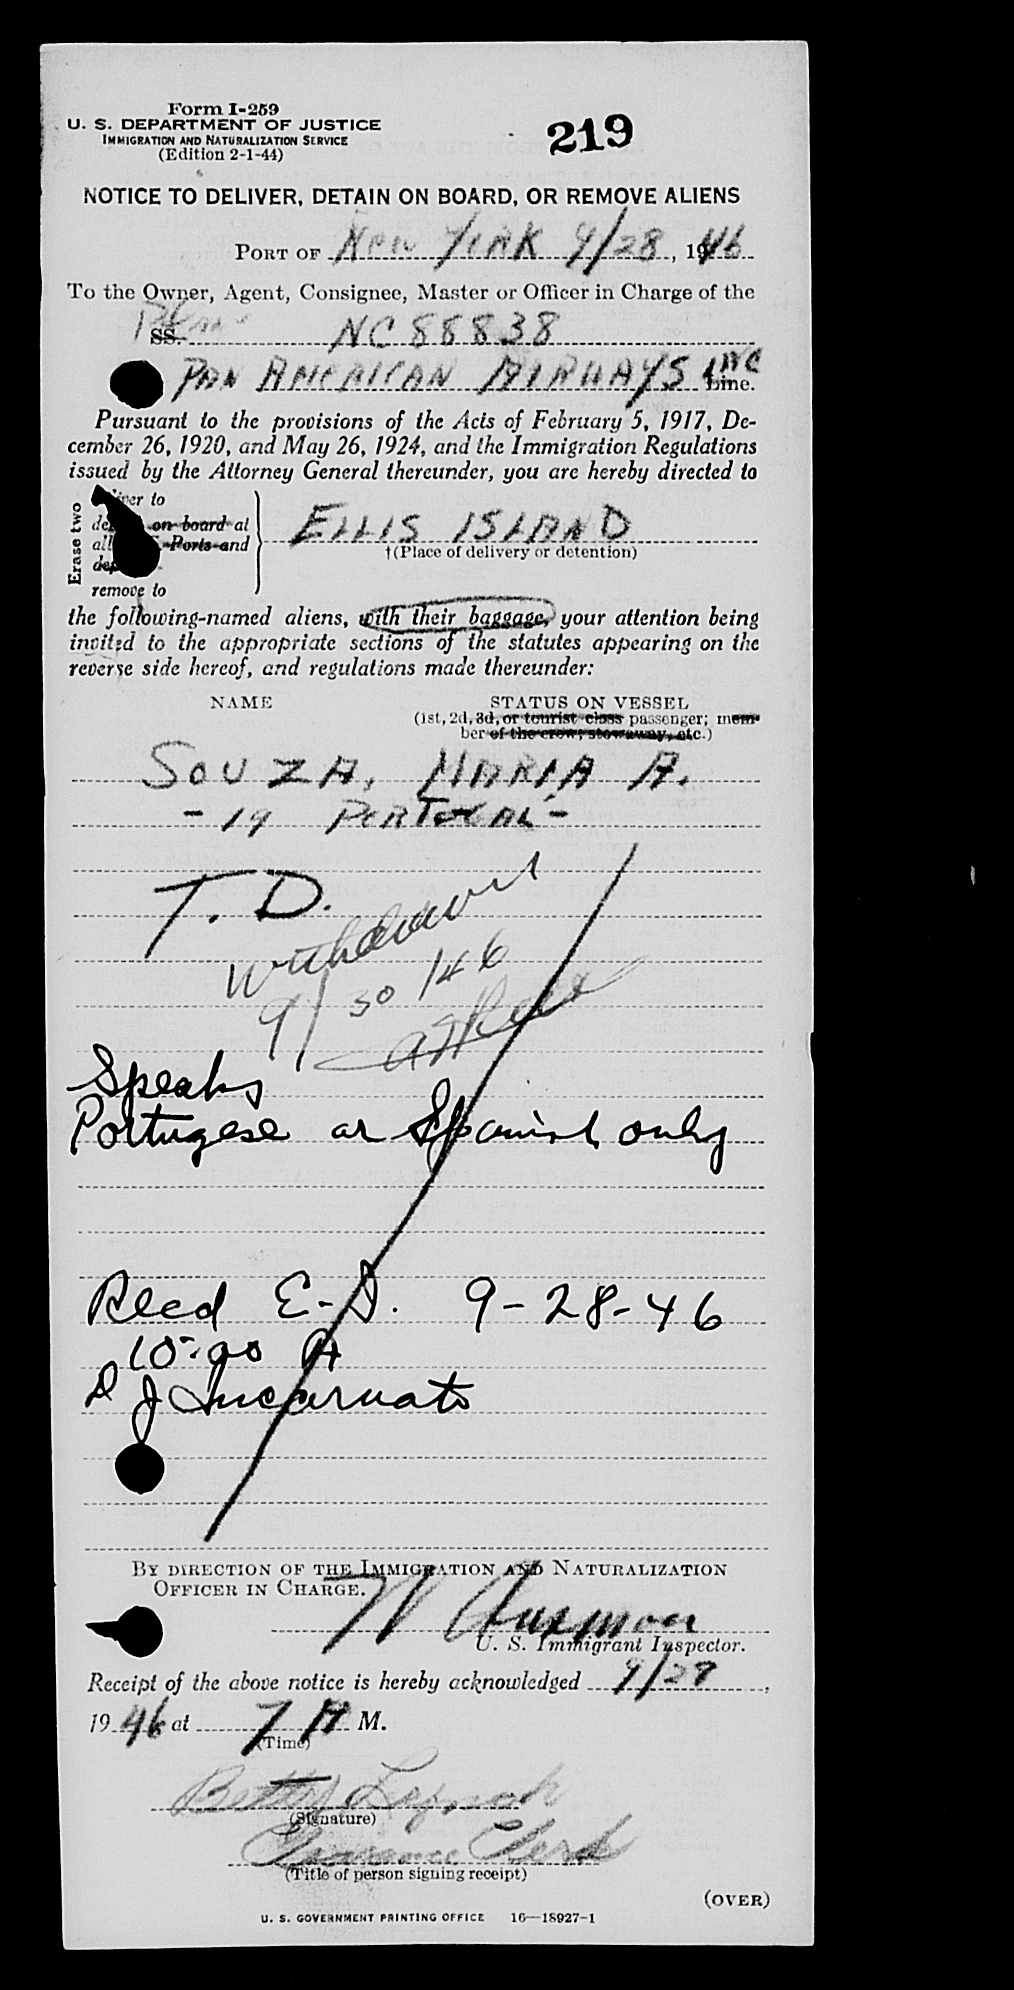 Form I-259
U. S. DEPARTMENT OF JUSTICE
IMMIGRATION AND NATURALIZATION SERVICE
(Edition 2-1-44)
219
NOTICE TO DELIVER, DETAIN ON BOARD, OR REMOVE ALIENS
PORT OF New York 9/28, 1946
To the Owner, Agent, Consignee, Master or Officer in Charge of the
SS. NC 88838
PAN AMERICAN AIRWAYS INC Line.
Pursuant to the provisions of the Acts of February 5, 1917, De-
cember 26, 1920, and May 26, 1924, and the Immigration Regulations
issued by the Attorney General thereunder, you are hereby directed to
Erase two
to
on board at
Ports and
remove to
ELLIS ISLAND
†(Place of delivery or detention)
the following-named aliens, with their baggage, your attention being
invited to the appropriate sections of the statutes appearing on the
reverse side hereof, and regulations made thereunder:
NAME
STATUS ON VESSEL
(1st, 2d, 3d, or tourist class passenger; mem-
ber of the crew, stowaway, etc.)
SOUZA, MARIA A.
- 19 PORTUGAL -
T. D.
Withdrawn
9/30/46
Speaks
Portugese or Spanish only
Recd E-D. 9-28-46
10:00 A
D J Incarnato
BY DIRECTION OF THE IMMIGRATION AND NATURALIZATION
OFFICER IN CHARGE.
U. S. Immigrant Inspector.
Receipt of the above notice is hereby acknowledged 9/29,
1946 at 7 A M.
(Time)
Betty
(Signature)
Clearance Clerk
(Title of person signing receipt)
(OVER)
U. S. GOVERNMENT PRINTING OFFICE 16—18927-1